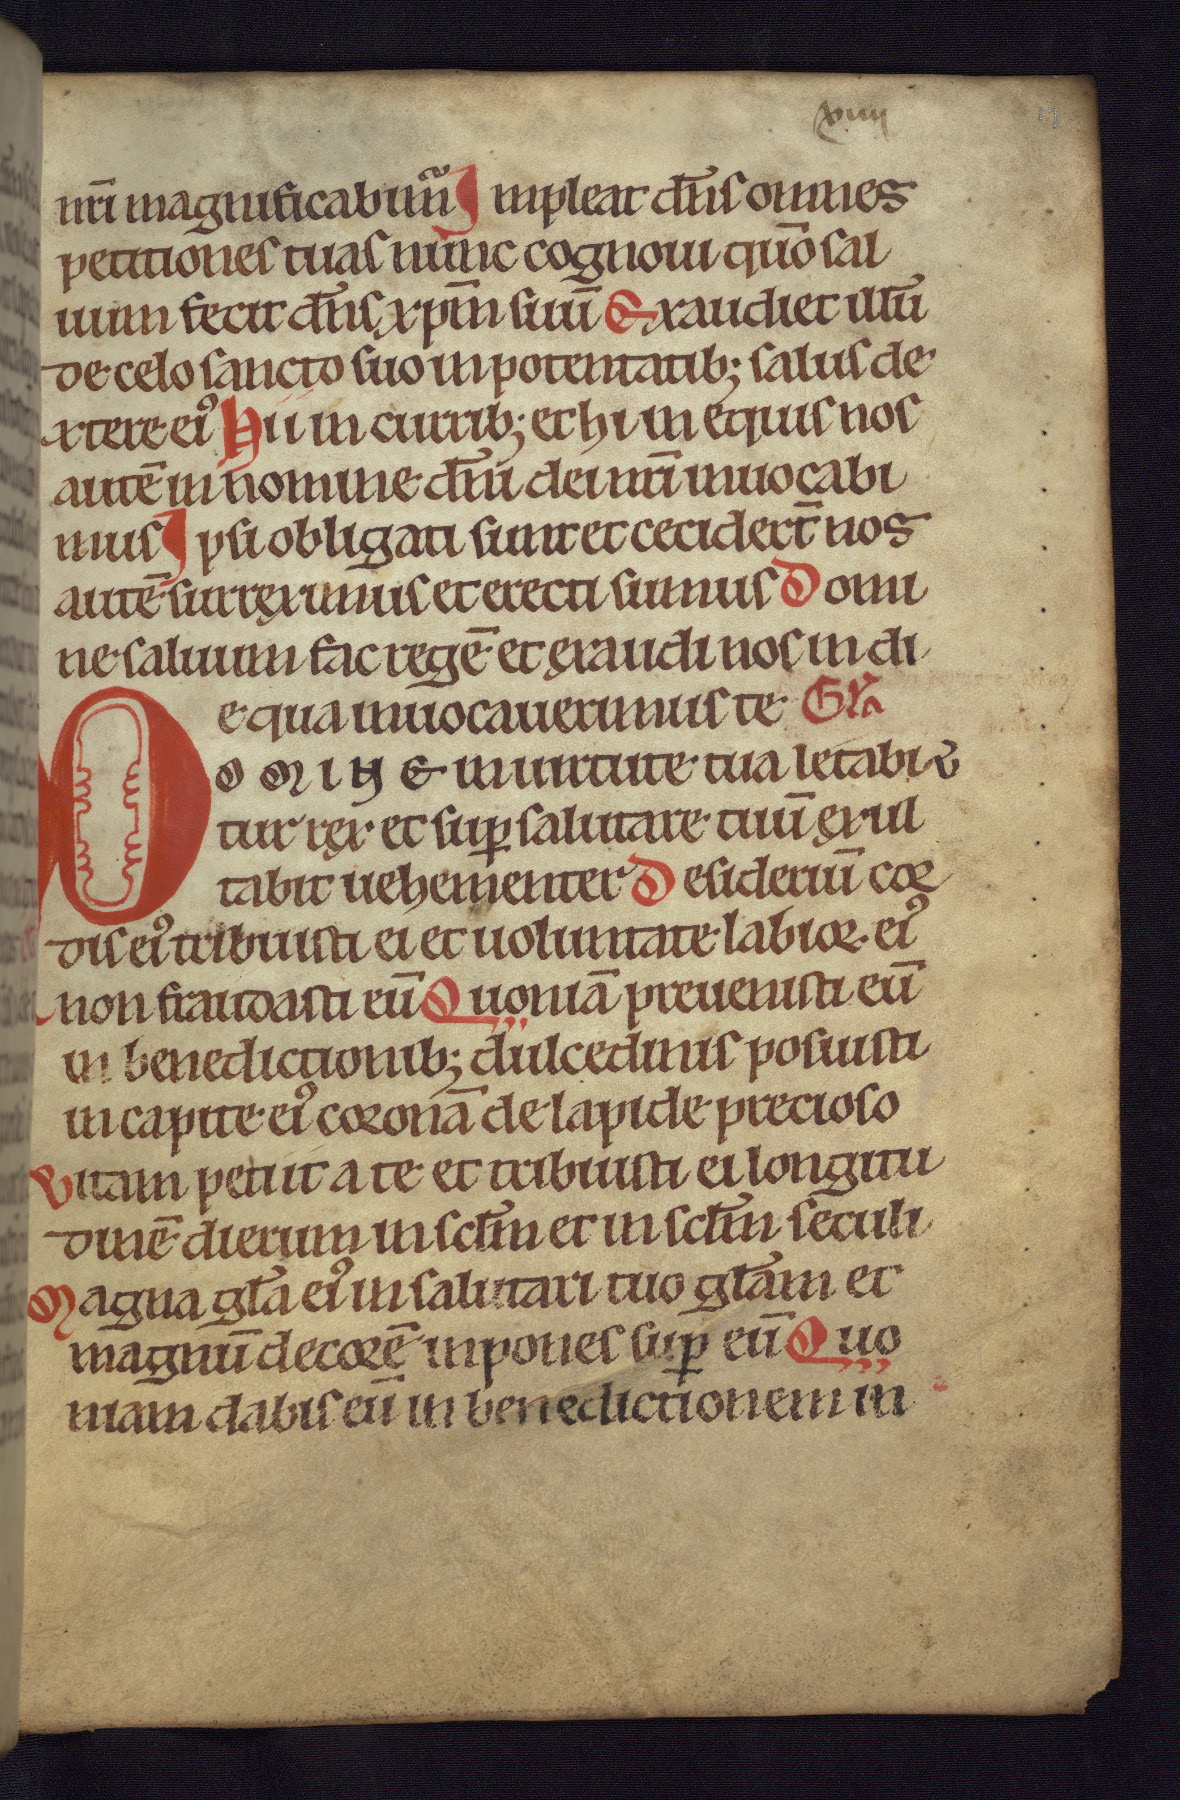 xviiii
nr̄i magnificabim᷒ Inpleat dn̄s omnes
petitiones tuas nunc cognoui qūo sal
uum fecit dn̄s xp̄m suū Exaudiet illū
de celo sancto suo in potentatib; salus de
xtere ei᷒ Hii in currib; et hi in equis nos
autē in nomine dn̄i dei nr̄i inuocabi
mus Ipsi obligati sunt et cecider̄t nos
autē surreximus et erecti sumus Domi
ne saluum fac regē et exaudi nos in di
e qua inuocauerimus te Gl̄a
DOMINE in uirtute tua letabi
tur rex et suꝑ salutare tuū exul
tabit uehementer Desideriū cor
dis ei᷒ tribuisti ei et uoluntate labior ei᷒
non fraudasti eū Quoniā preuenisti eū
in benedictionib; dulcedinis posuisti
in capite ei᷒ coronā de lapide precioso
Vitam petiit a te et tribuisti ei longitu
dinē dierum in sclm̄ et in sclm̄ seculi
Magna gl̄a ei᷒ in salutari tuo gl̄am et
magnū decorē inpones suꝑ eū Quo
niam dabis eū in benedictionem in